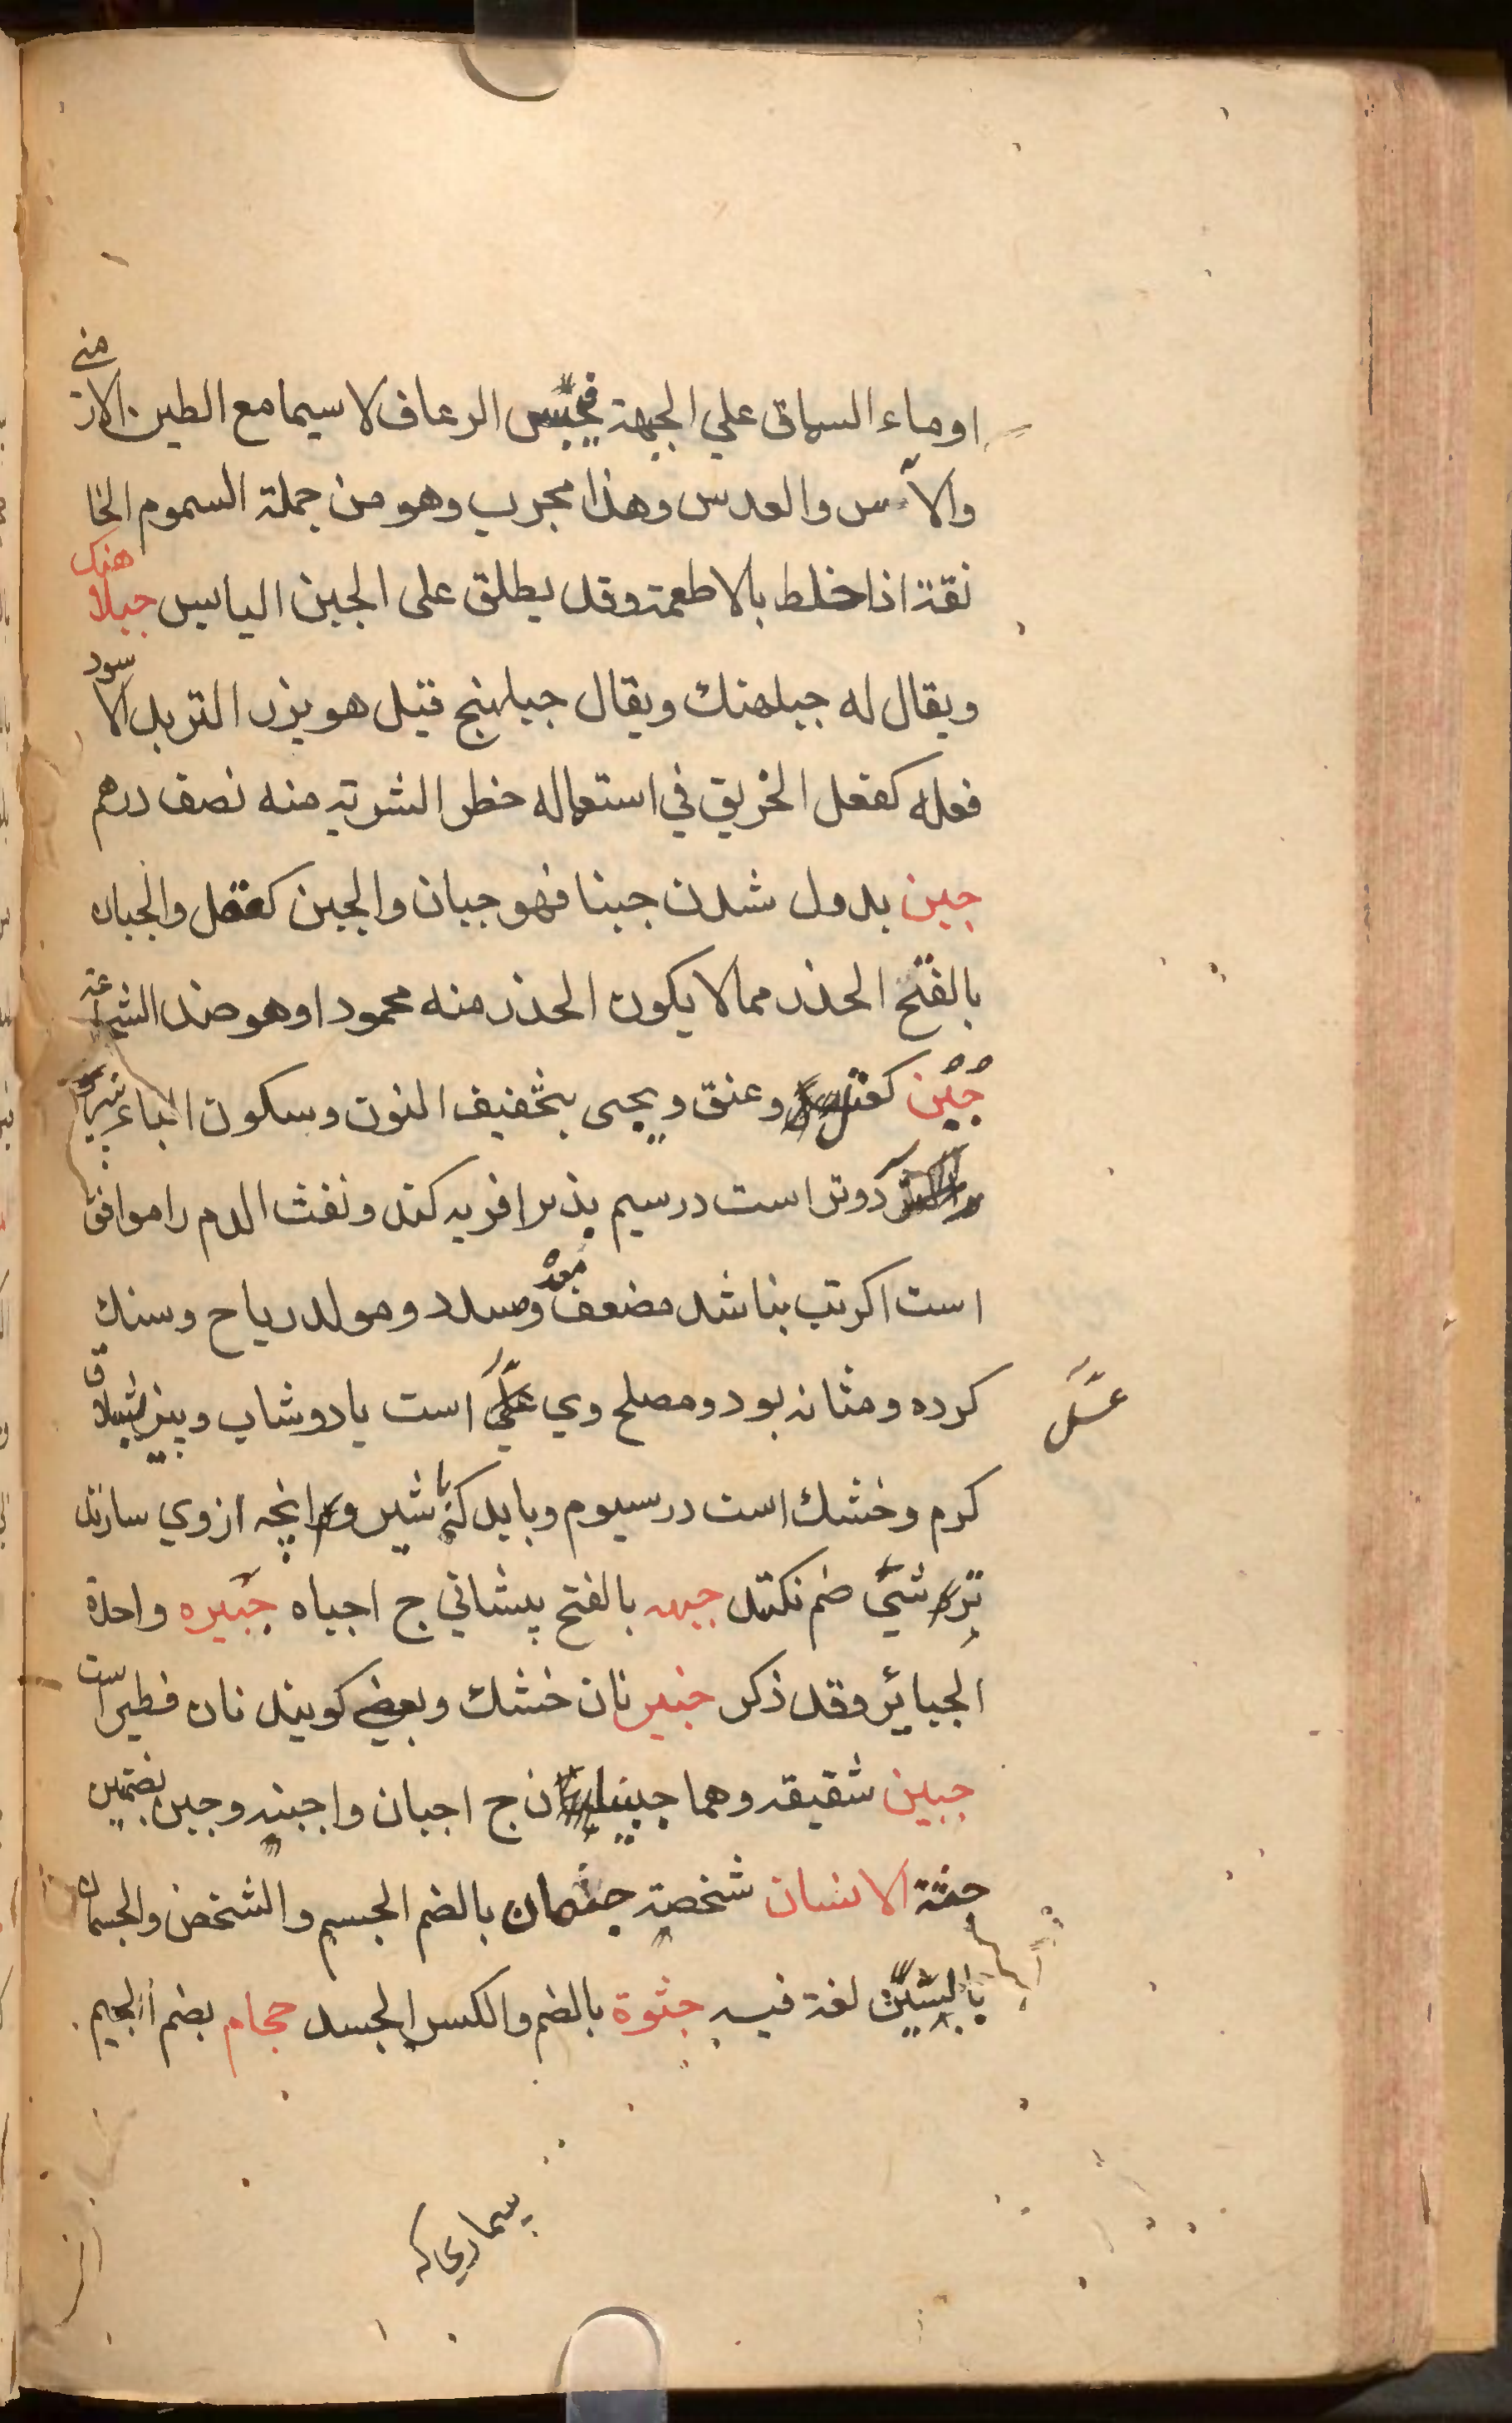 او ماء السماق علي الجبهة فيحبس الرعاف لا سيما مع الطين الارمني
والآس والعدس وهذا مجرب وهو من جملة السموم الخا
نقة اذا خلط بالاطعمة وقد يطلق على الجبن اليابس جبلاهنك
ويقال له جبلهنك ويقال جبلهنج قيل هو بزر التربد الاسود
فعله كفعل الخربق في استعماله خطر الشربة منه نصف درهم
جبن بددل شدن جبنا فهو جبان والجبن كقفل والجبان
بالفتح الحذر مما لا يكون الحذر منه محمودا وهو ضد الشجاعة
جبن وعنق ويجى بتخفيف النون وسكون الباء
دوتر است درسيم بذيرا فربه كند ونفث الدم را موافق
است اكر تب بناشد مضعف معده ومسدد ومولد رياح وسنك
كرده ومثانه بود ومصلح وي است يا دوشاب وپنير
عسل
كرم وخشك است درسيوم وبايد كه با شير وانچه از وي سازند
شئ ضم نكنند جبهه بالفتح پيشاني ج اجباه جبيره واحدة
الجبائر وقد ذكر جبيز نان خشك وبعضي كويند نان فطير است
جبين شقيقه وهما جبينان ج اجبان واجبنه وجبن بضمتين
جثة الانسان شخصه جثمان بالضم الجسم والشخص والجسمان
بالسين لغة فيه جثوة بالضم والكسر الجسد حجام بضم الجيم
بيماري كه